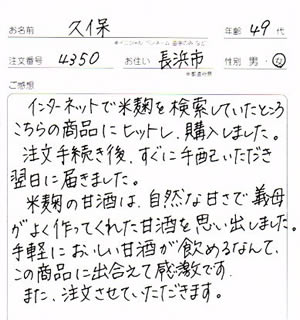 お名前 久保 年齢 49 代
※イニシャル、ペンネーム、苗字のみ など
注文番号 4350 お住い 長浜市 性別 男・女
※都道府県
ご感想
インターネットで米麹を検索していたところ
こちらの商品にヒットし、購入しました。
注文手続き後、すぐに手配いただき
翌日に届きました。
米麹の甘酒は、自然な甘さで義母
がよく作ってくれた甘酒を思い出しました。
手軽においしい甘酒が飲めるなんて、
この商品に出合えて感激です。
また、注文させていただきます。